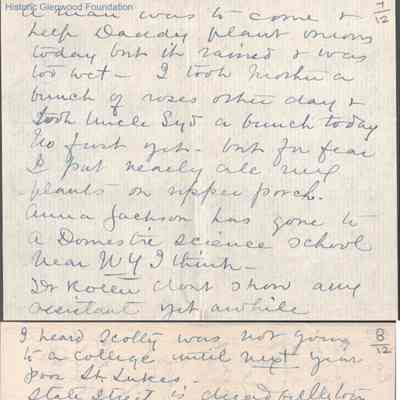 Historic Glenwood Foundation
7/12
A man was to come &
help Daddy plant onions
today but it rained & was
too wet — I took Mother a
bunch of roses other day &
took Uncle Syd a bunch today
No frost yet — but for fear
I put nearly all my
plants on upper porch.
Anna Jackson has gone to
a Domestic science school
near NY I think —
Dr Rosen dont show any
assistant yet awhile
8/12
I heard Scotty was not going
to a college until next year
poor St. Lukes —
State Street is